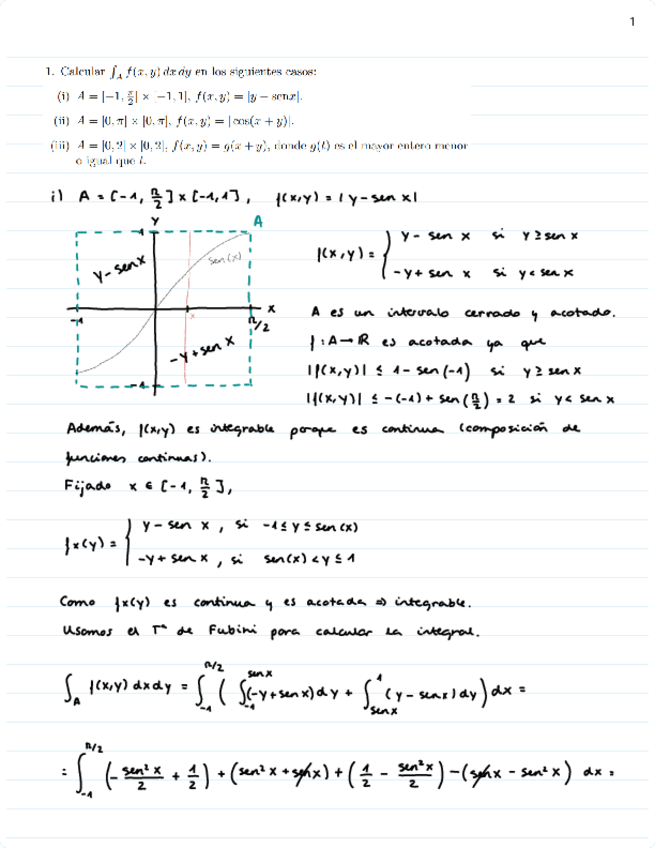 1
1. Calcular ∫_A f(x, y) dx dy en los siguientes casos:
(i) A = [−1, π/2] × [−1, 1], f(x, y) = |y − senx|.
(ii) A = [0, π] × [0, π], f(x, y) = |cos(x + y)|.
(iii) A = [0, 2] × [0, 2], f(x, y) = g(x + y), donde g(t) es el mayor entero menor
o igual que t.
i) A = [-1, π/2] x [-1,1], f(x,y) = |y - sen x|
Y
A
1
y - sen x
sen(x)
-1
x
X
π/2
-y + sen x
-1
f(x,y) = { y - sen x si y ≥ sen x
-y + sen x si y < sen x
A es un intervalo cerrado y acotado.
f: A → ℝ es acotada ya que
|f(x,y)| ≤ 1 - sen(-1) si y ≥ sen x
|f(x,y)| ≤ -(-1) + sen(π/2) = 2 si y < sen x
Además, f(x,y) es integrable porque es continua (composición de
funciones continuas).
Fijado x ∈ [-1, π/2],
fx(y) = { y - sen x, si -1 ≤ y ≤ sen(x)
-y + sen x, si sen(x) < y ≤ 1
Como fx(y) es continua y es acotada ⇒ integrable.
Usamos el Tª de Fubini para calcular la integral.
∫_A f(x,y) dxdy = ∫_{-1}^{π/2} ( ∫_{-1}^{sen x} (-y + sen x) dy + ∫_{sen x}^{1} (y - sen x) dy ) dx =
= ∫_{-1}^{π/2} (- sen² x / 2 + 1/2) + (sen² x + sen x) + (1/2 - sen² x / 2) - (sen x - sen² x) dx =